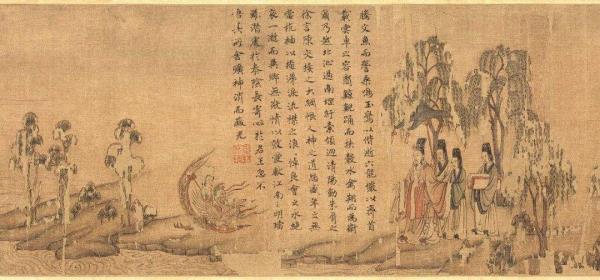 騰文魚而警乘鳴玉鸞以偕逝六龍儼以齊首
載雲車之容裔鯨鯢踊而挾轂水禽翔而為衛
爾乃越北沚過南堽紆素領迴清陽動朱脣之
徐言陳交接之大綱恨人神之道殊盛年之無
當抗袖以掩涕淚流襟之浪悼良會之永絕
哀一逝而異鄉無微情以效愛獻江南之明璫
雖潛處於太陰長寄心於君王忽不
悟其所舍悵神消而蔽光